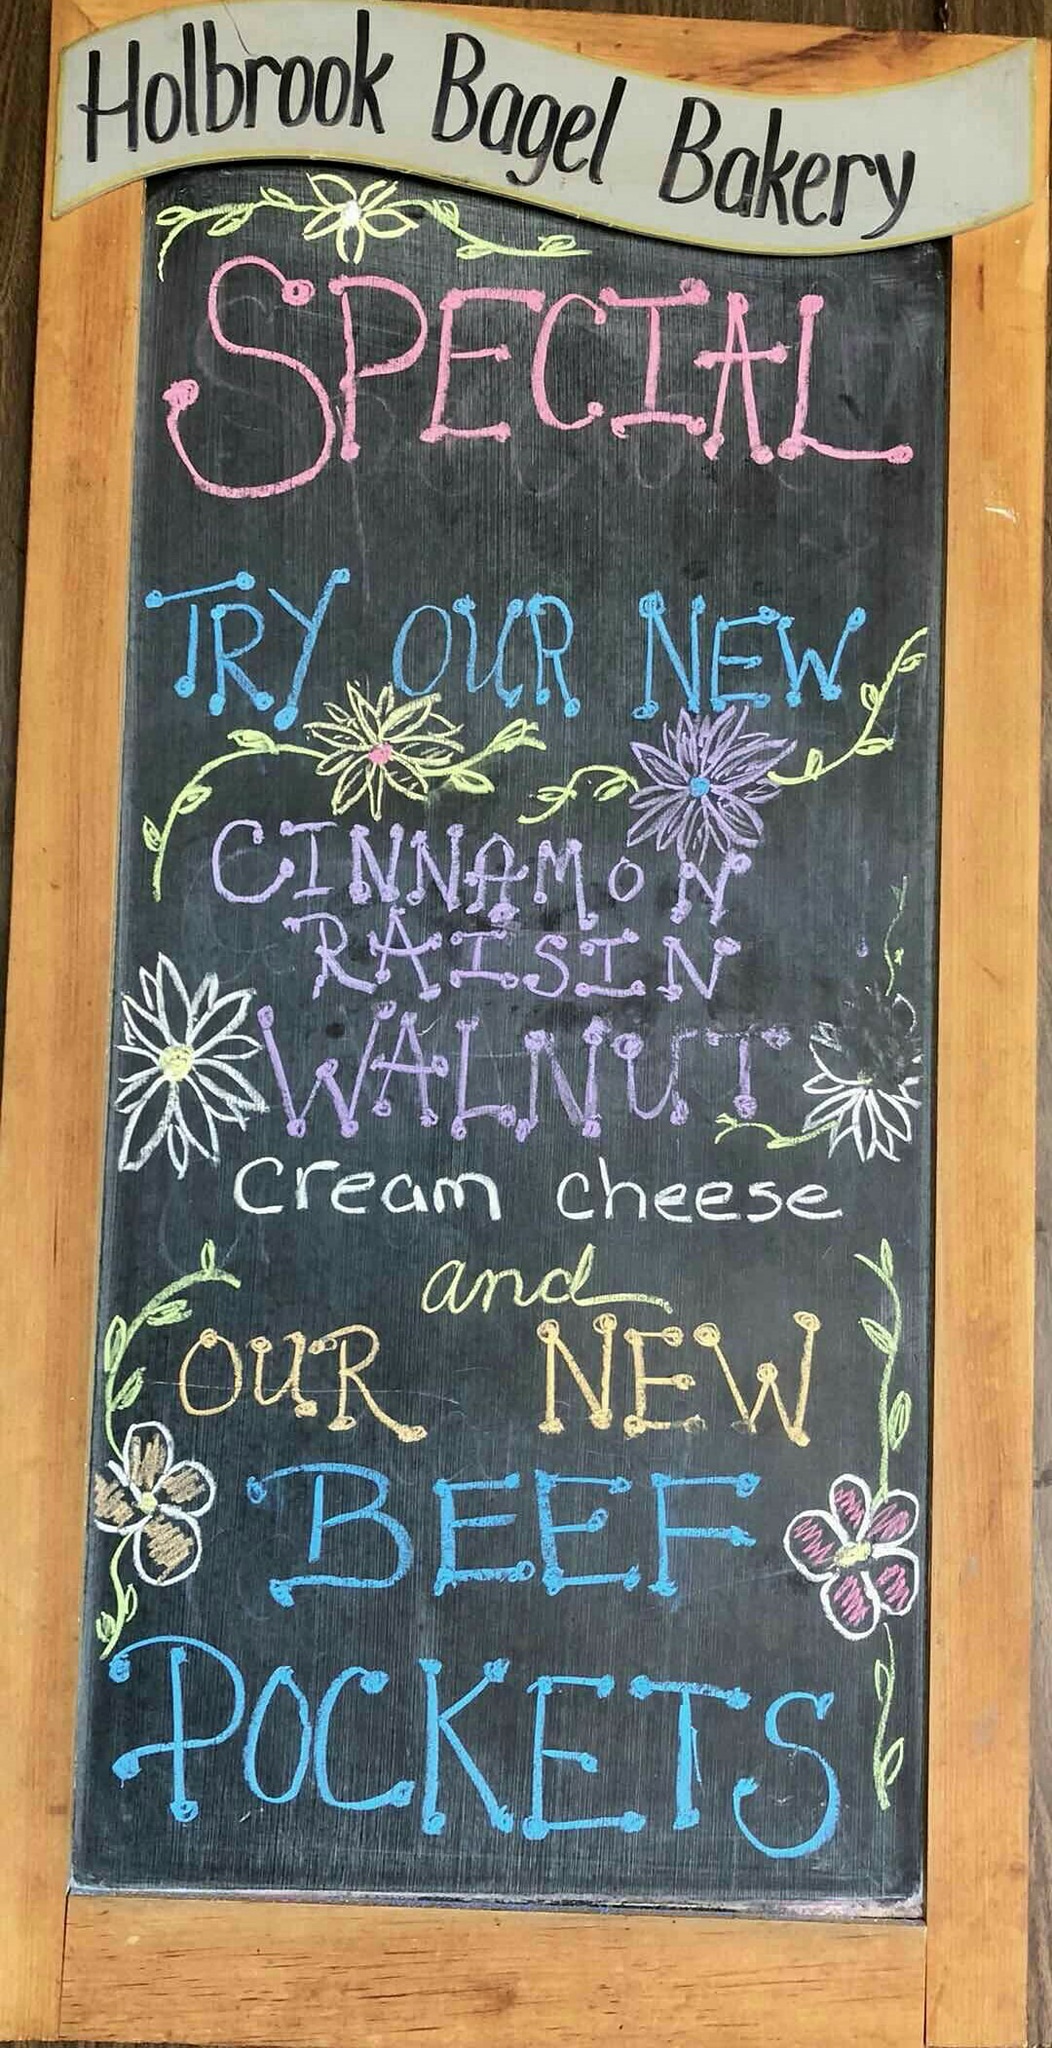 Holbrook Bagel Bakery
SPECIAL
TRY OUR NEW
CINNAMON
RAISIN
WALNUT
cream cheese
and
OUR NEW
BEEF
POCKETS